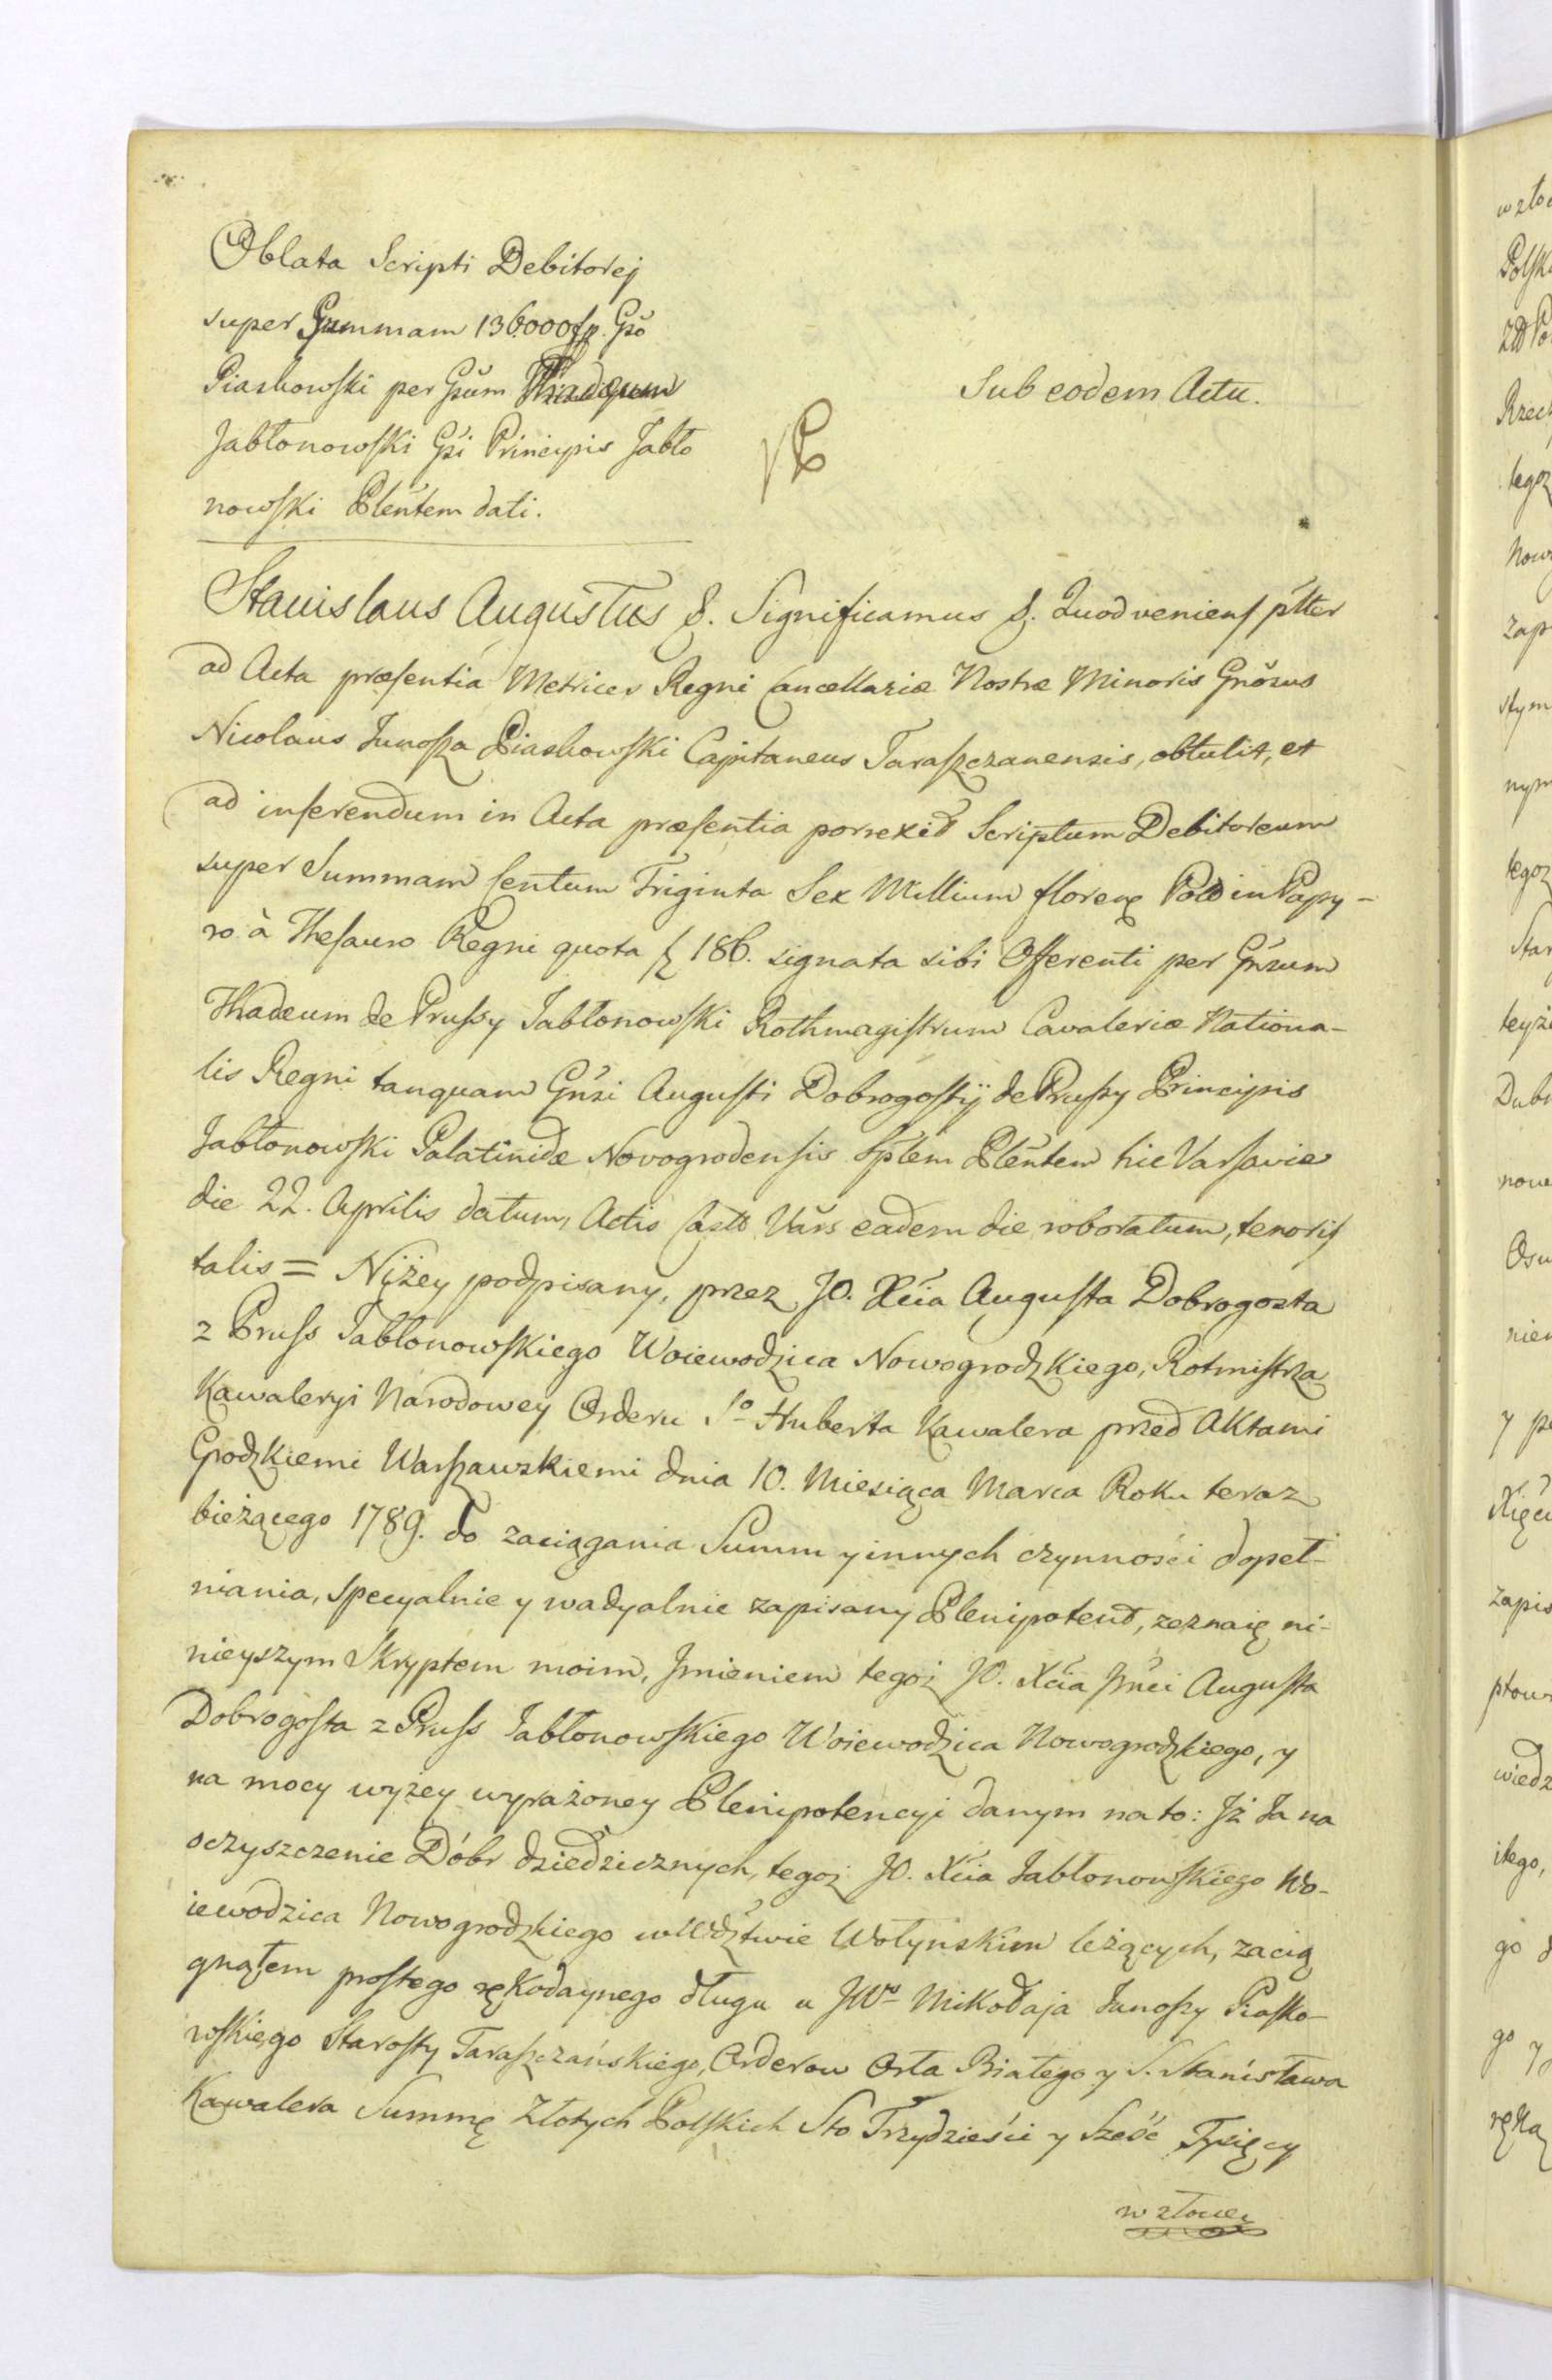 Oblata Scripti Debitorej
super Summam 136000 fp. Gso
Piaskowski per Gsum Thadeum
Jabłonowski Gsi Principis Jabło
nowski Plentem dati.
Sub eodem Actu.
Stanislaus Augustus &. Significamus &. Quod veniens pltter
ad Acta præsentia Metrices Regni Cancellariæ Nostræ Minoris Gnosus
Nicolaus Junosza Piaskowski Capitaneus Taraszczanensis, obtulit, et
ad inferendum in Acta præsentia porrexit Scriptum Debitoreum
super Summam Centum Triginta Sex Millium floren Pold in Papy-
ro à Thesauro Regni quota fl 186. signata sibi Offerenti per Gnsum
Thadeum de Prussy Jabłonowski Rothmagistrum Cavaleriæ Nationa-
lis Regni tanquam Gnsi Augusti Dobrogostij de Prussy Principis
Jabłonowski Palatinidæ Novogrodensis Splem Plentem hic Varsaviæ
die 22. Aprilis datum, Actis Castr Vars eadem die roboratum, tenoris
talis = Niżey podpisany, przez JO. Xcia Augusta Dobrogosta
z Pruss Jabłonowskiego Woiewodzica Nowogrodzkiego, Rotmistrza
Kawaleryi Narodowey Orderu So Huberta Kawalera przed Aktami
Grodzkiemi Warszawskiemi dnia 10. Miesiąca Marca Roku teraz
bieżącego 1789. do zaciągania Summ y innych czynności dopeł-
niania, specyalnie y wadyalnie zapisany Plenipotent, zeznaię ni-
nieyszym Skryptem moim, Jmieniem tegoż JO. Xcia Jmci Augusta
Dobrogosta z Pruss Jabłonowskiego Woiewodzica Nowogrodzkiego, y
na mocy wyżey wyrażoney Plenipotencyi danym na to: Jż Ja na
oczyszczenie Dóbr dziedzicznych, tegoż JO. Xcia Jabłonowskiego Wo-
iewodzica Nowogrodzkiego w Wdztwie Wołynskim leżących, zacią
gnąłem prostego rękodaynego długu u JWo Mikołaja Junoszy Piasko-
wskiego Starosty Taraszczańskiego, Orderow Orła Białego y S. Stanisława
Kawalera Summę Złotych Polskich Sto Trzydzieści y Sześć Tysięcy
w złocie